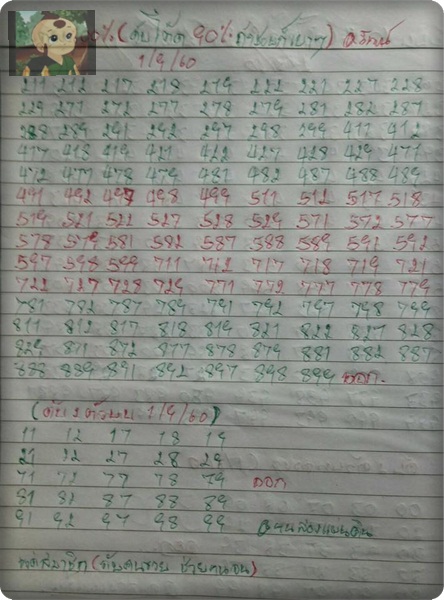 90% (ดับโต๊ด 90%
1/9/60
211 212 217 218 219 222 221 227 228
229 271 272 277 278 279 281 282 287
288 289 291 292 297 298 299 411 412
417 418 419 421 422 427 428 429 471
472 477 478 479 481 482 487 488 489
491 492 497 498 499 511 512 517 518
519 521 522 527 528 529 571 572 577
578 579 581 582 587 588 589 591 592
597 598 599 711 712 717 718 719 721
722 727 728 729 771 772 777 778 779
781 782 787 789 791 792 797 798 799
811 812 817 818 819 821 822 827 828
829 871 872 877 878 879 881 882 887
888 889 891 892 897 898 899 ออก.
(ดับ 2 ตัวบน 1/9/60)
11 12 17 18 19
21 22 27 28 29
71 72 77 78 79 ออก
81 82 87 88 89
91 92 97 98 99